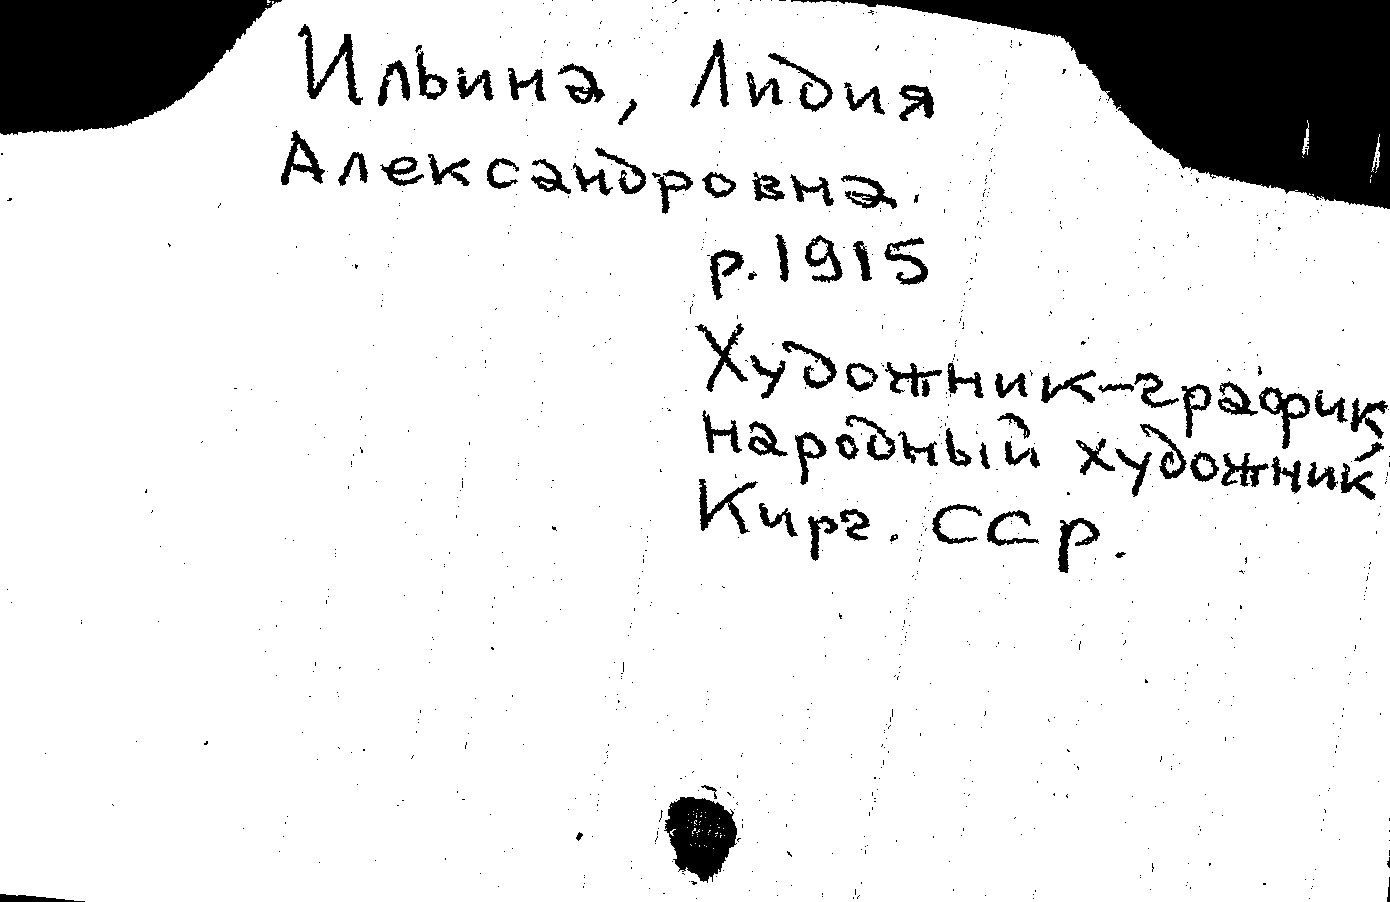 Ильина, Лидия
Александровна.
р. 1915
Художник-график
народный художник
Кирг. ССР.